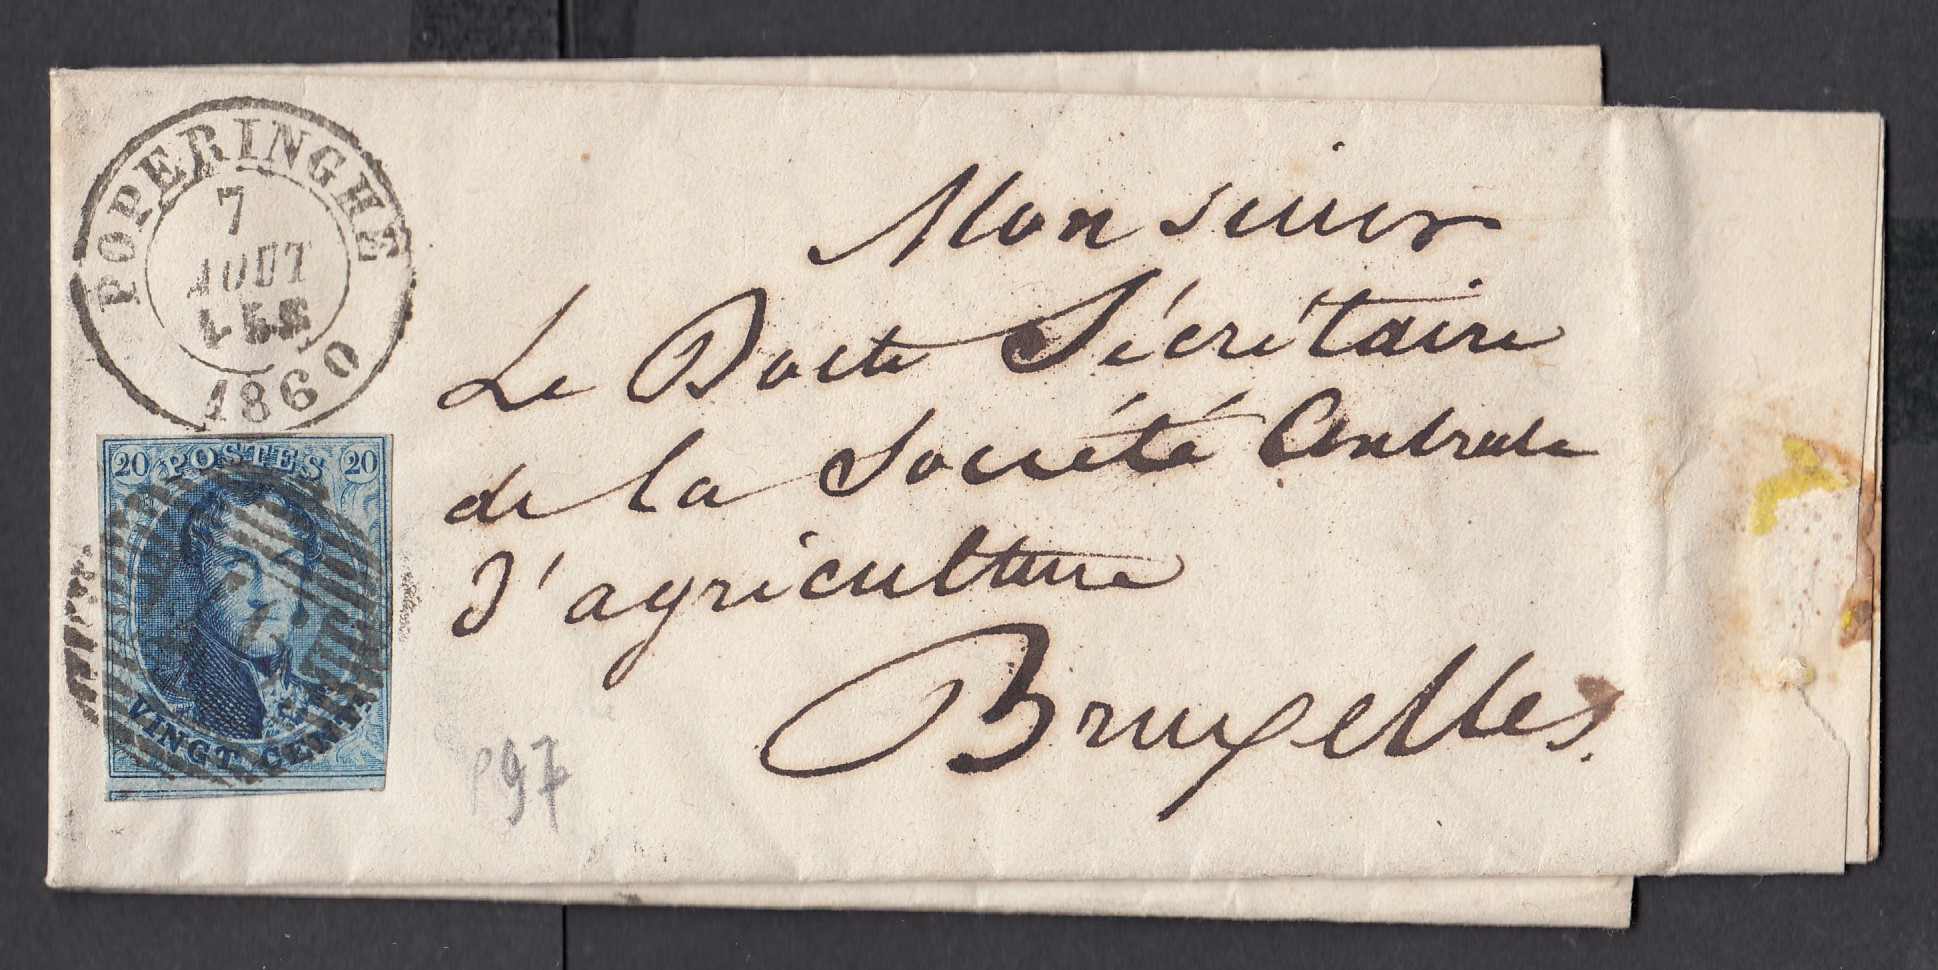 POPERINGHE
7
AOUT
1860
20 POSTES 20
VINGT CENT.
P97
Monsieur
Le Docte Sécrétaire
de la Société Centrale
d'agriculture
Bruxelles.